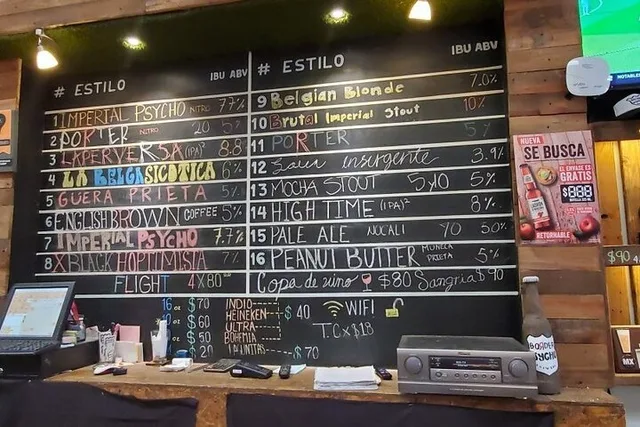 # ESTILO IBU ABV
1 IMPERIAL PSYCHO NITRO 7.7%
2 PORTER NITRO 20 5%
3 LAPERVERSA (IPA)² 8.8%
4 LA BELGASICOTICA 6%
5 GUERA PRIETA 5%
6 ENGLISH BROWN COFFEE 5%
7 IMPERIAL PSYCHO 7.7%
8 XBLACK HOPTIMISTA 7%
FLIGHT 4X80
# ESTILO IBU ABV
9 Belgian Blonde 7.0%
10 Brutal Imperial Stout 10%
11 PORTER 5%
12 Lager insurgente 3.9%
13 MOCHA STOUT 5%
14 HIGHTIME (IPA)² 8%
15 PALE ALE 5.0%
16 PEANUT BUTTER MUÑECA PRIETA 5%
Copa de vino $80 Sangria $90
16 oz $70
$60
$50
$20
INDIO
HEINEKEN
ULTRA
BOHEMIA
$40
$70
WIFI
T.C x $18
NUEVA
SE BUSCA
EL ENVASE ES
GRATIS
$888
RETORNABLE
BORDER
PSYCHO
$90
MX